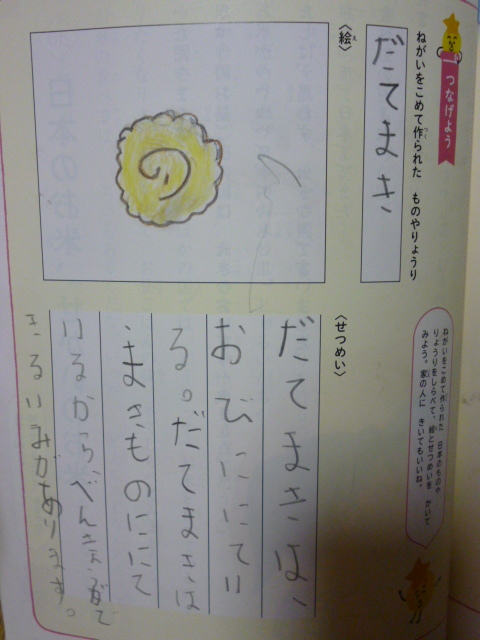 つなげよう
ねがいをこめて作られた ものやりょうり
だてまき
〈絵〉
ねがいをこめて作られた 日本のものや
りょうりをしらべて、絵とせつめいを かいて
みよう。家の人に きいてもいいね。
〈せつめい〉
だてまきは、
おびににてい
る。だてまきは
、まきものににて
いるから、べんきょうがで
きるいみがあります。